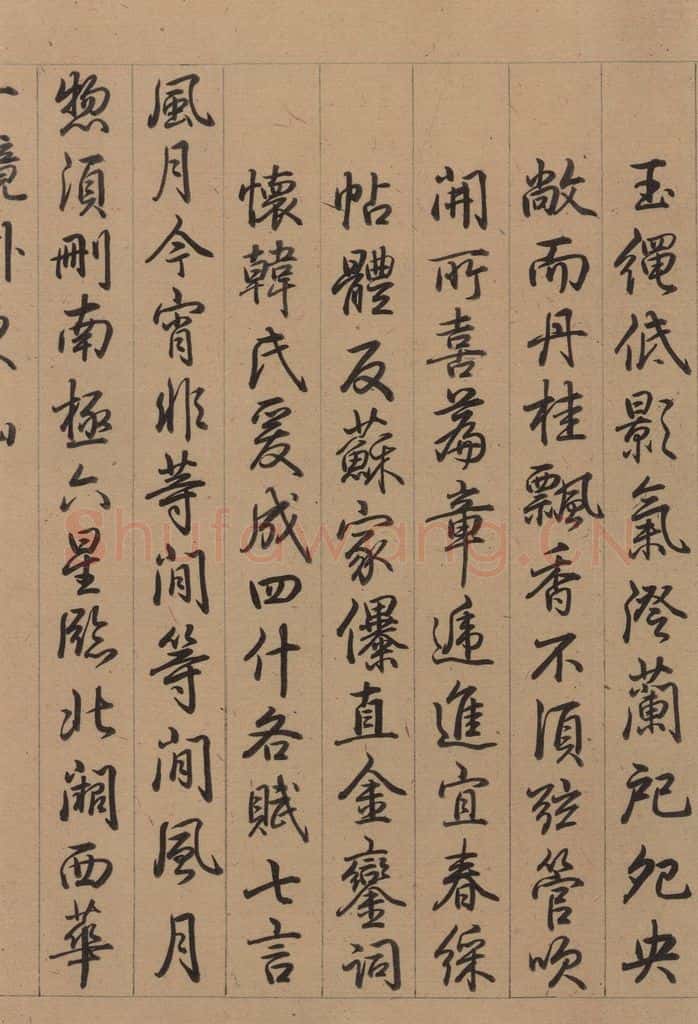 玉繩低影氣澄蘭戺央
敞而丹桂飄香不須弦管吹
開所喜篇章遞進宜春綵
帖體反蘇家儤直金鑾詞
懷韓氏爰成四什各賦七言
風月今宵非等閒等閒風月
惣須刪南極六星臨北闕西華
境外
Shufawang.CN